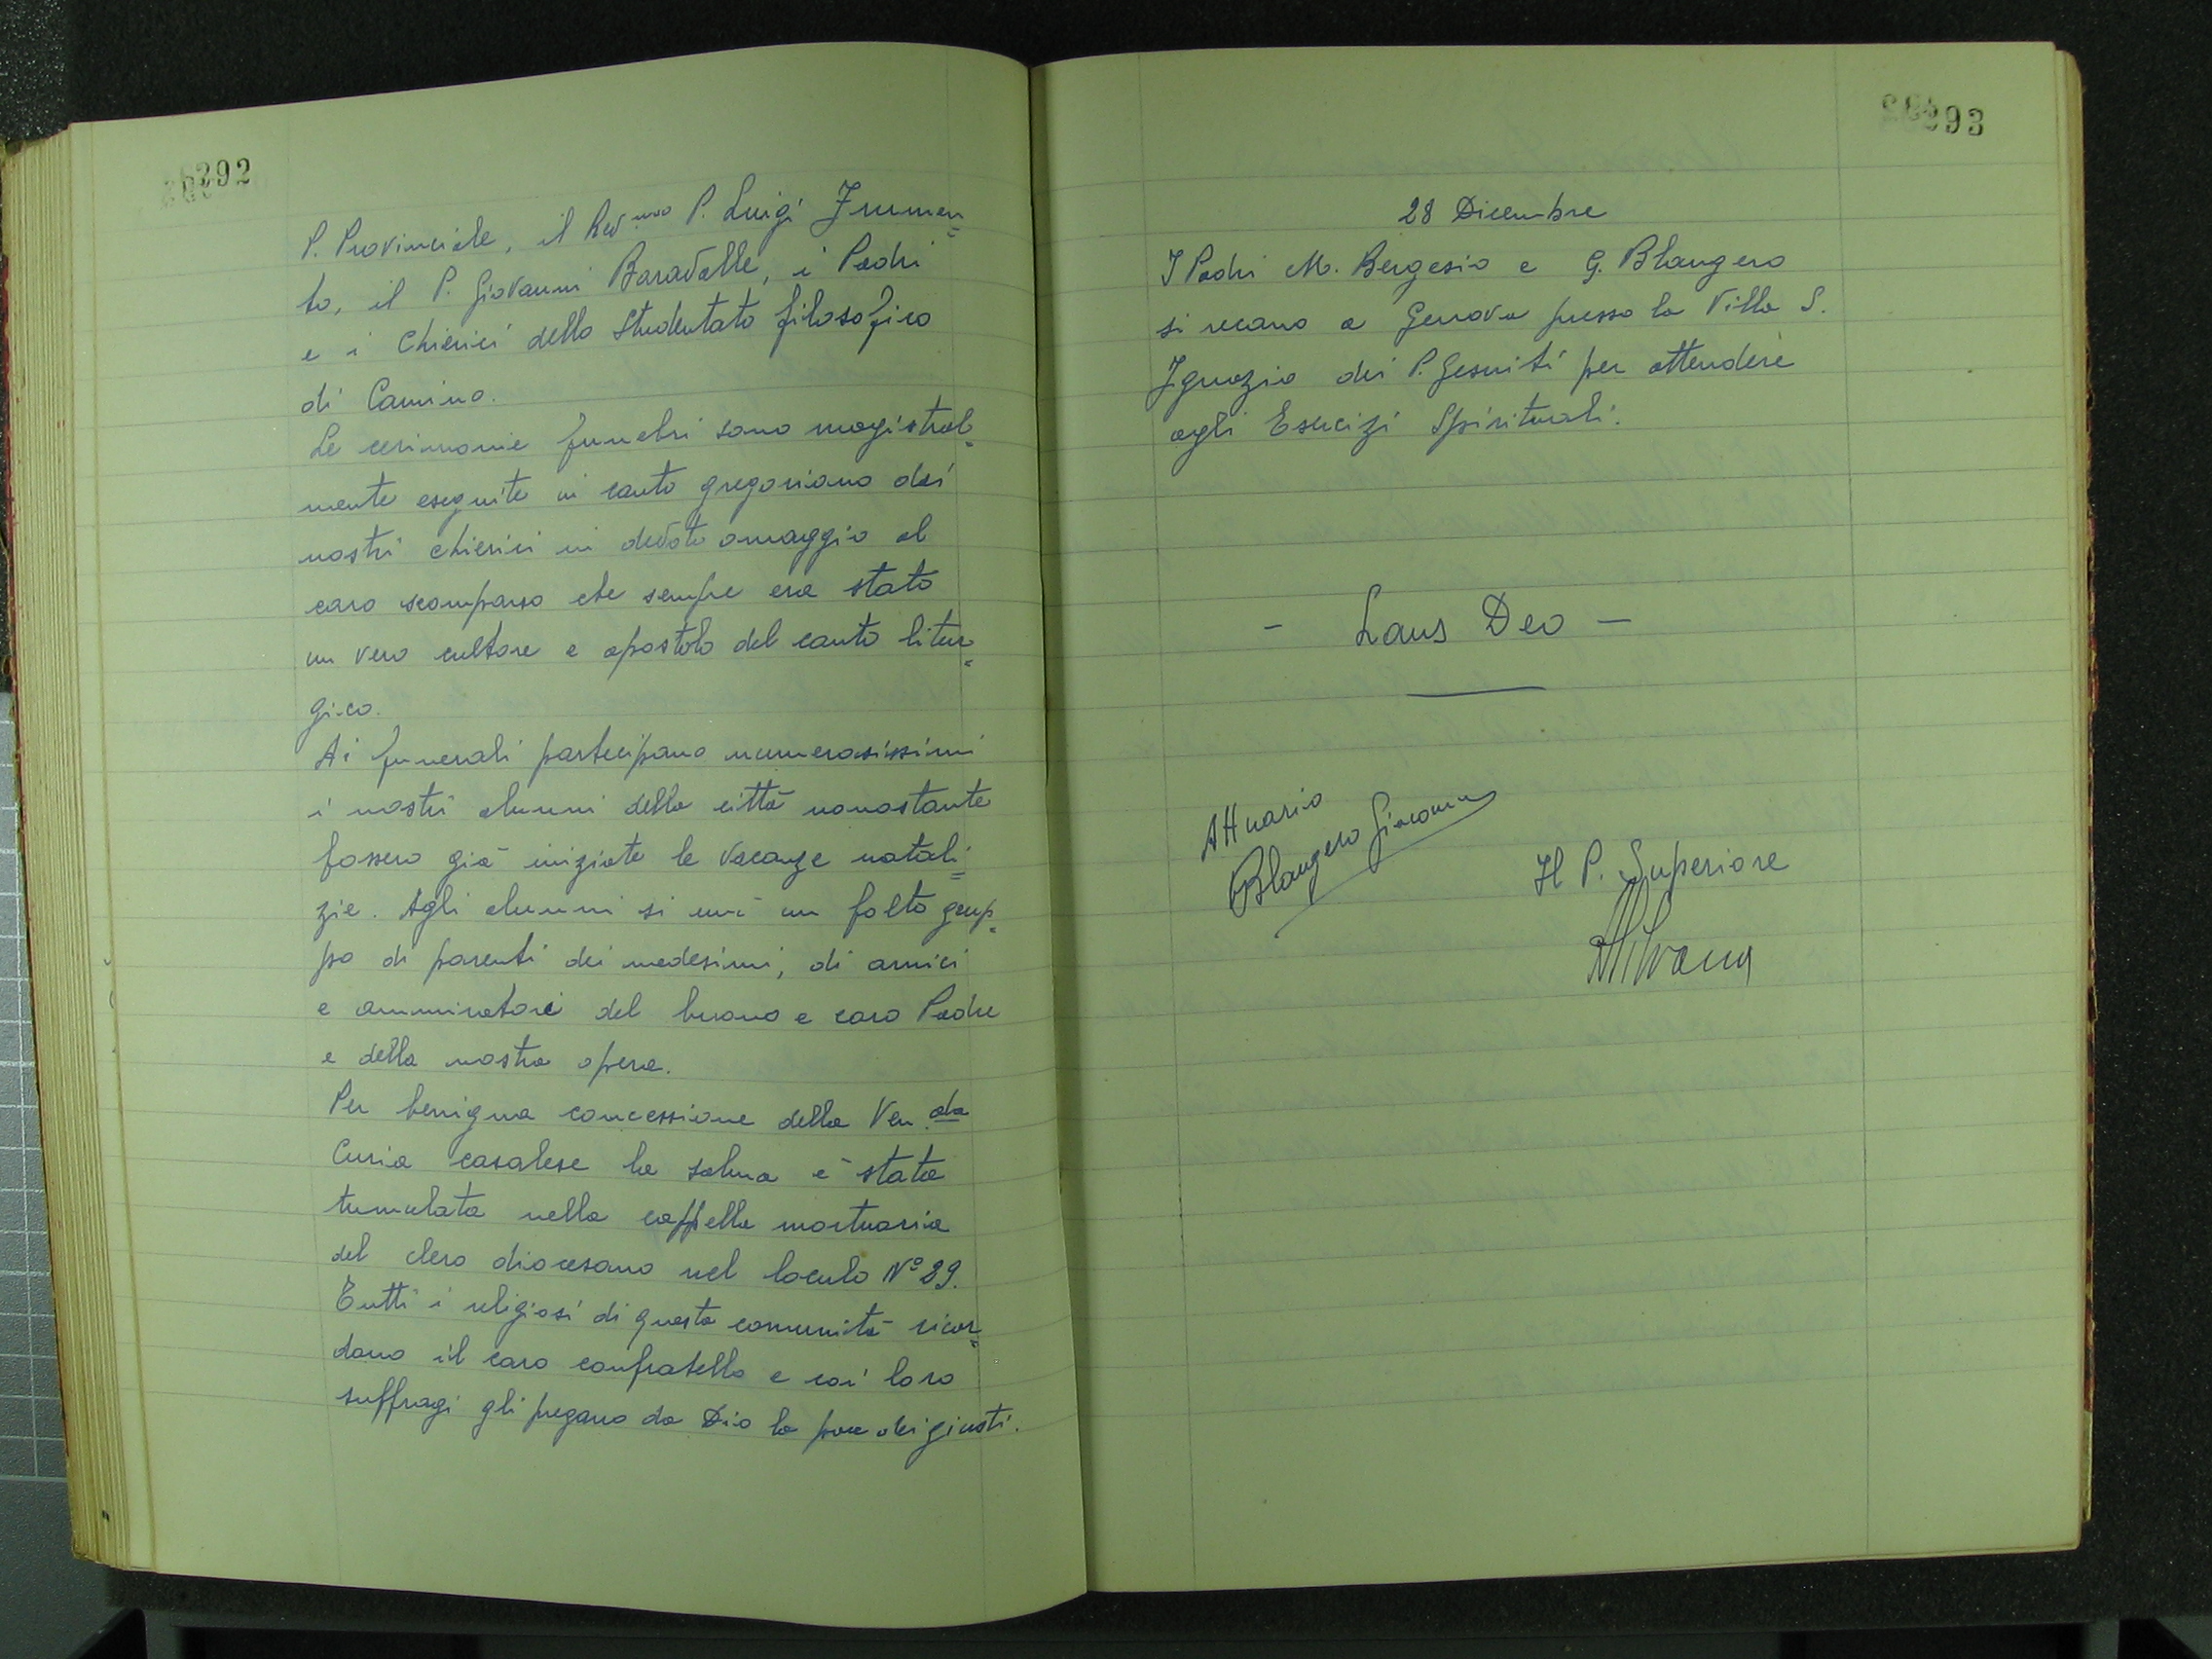 292
P. Provinciale, il Rev.mo P. Luigi Frumen=
to, il P. Giovanni Baravalle, i Padri
e i Chierici dello Studentato filosofico
di Camino.
Le cerimonie funebri sono magistral=
mente eseguite in canto gregoriano dai
nostri chierici in devoto omaggio al
caro scomparso che sempre era stato
un vero cultore e apostolo del canto litur=
gico.
Ai funerali partecipano numerosissimi
i nostri alunni della città nonostante
fossero già iniziate le vacanze natali=
zie. Agli alunni si unì un folto grup=
po di parenti dei medesimi, di amici
e ammiratori del buono e caro Padre
e della nostra opera.
Per benigna concessione della Ven.da
Curia casalese la salma è stata
tumulata nella cappella mortuaria
del clero diocesano nel loculo N° 89.
Tutti i religiosi di questa comunità ricor=
dano il caro confratello e coi loro
suffragi gli pregano da Dio la pace dei giusti.
293
28 Dicembre
I Padri M. Bergesio e G. Blangero
si recano a Genova presso la Villa S.
Ignazio dei P. Gesuiti per attendere
agli Esercizi Spirituali.
- Laus Deo -
Attuario
Blangero Giacomo
Il P. Superiore